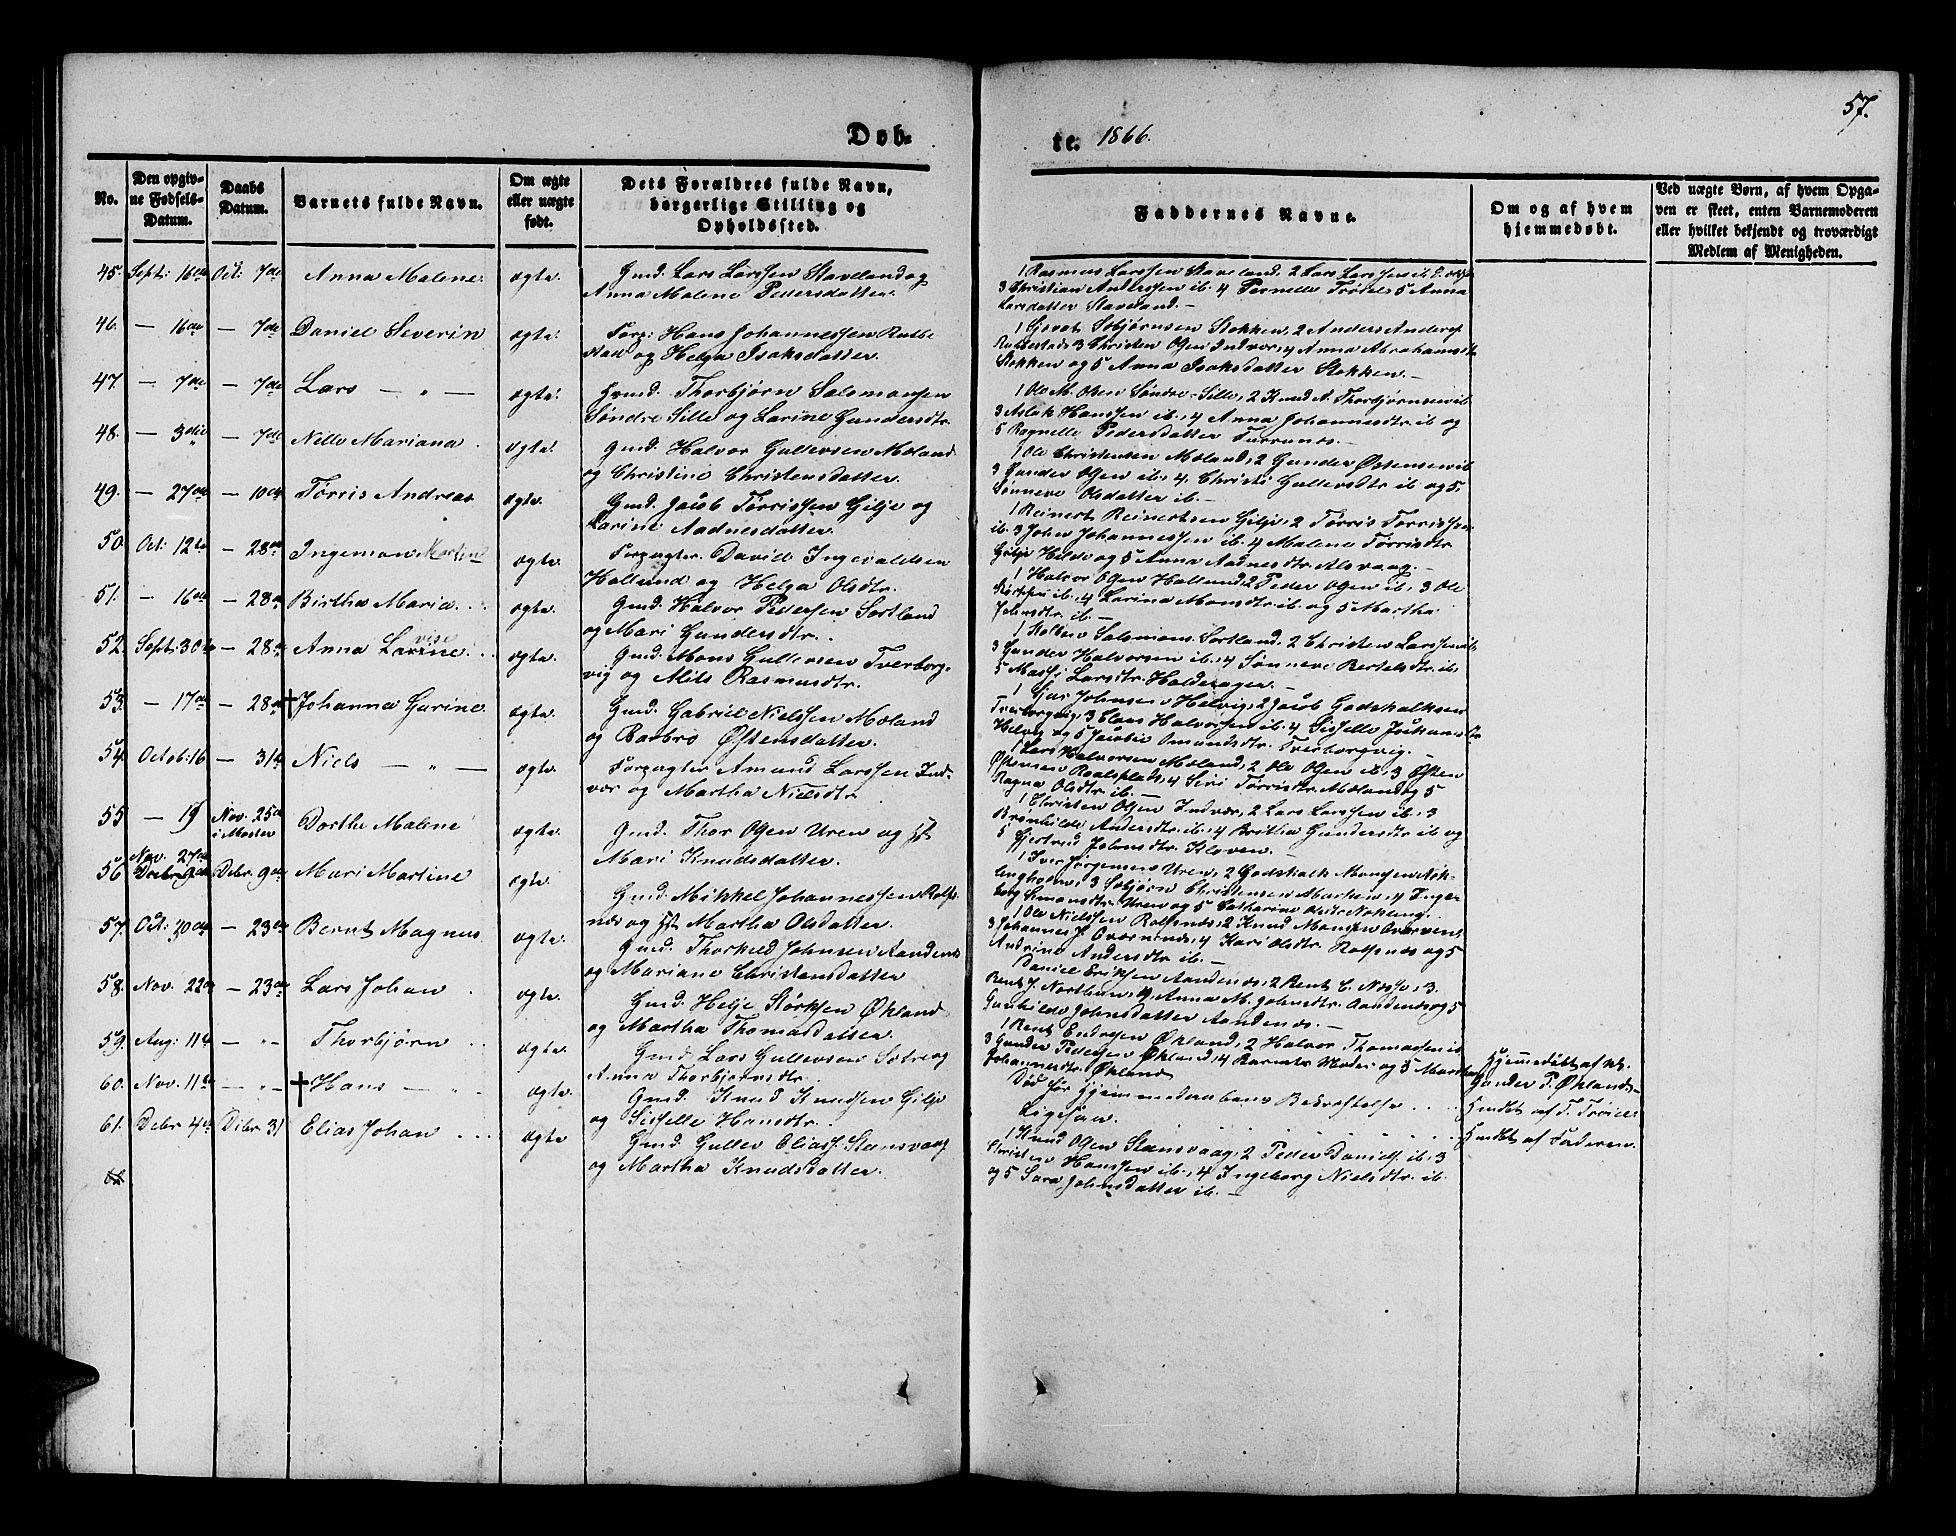 57.
Døb-
te. 1866.
No.
Den opgiv-
ne Fødsels-
Datum.
Daabs
Datum.
Barnets fulde Navn.
Om ægte
eller uægte
født.
Dets Forældres fulde Navn,
borgerlige Stilling og
Opholdssted.
Faddernes Navne.
Om og af hvem
hjemmedøbt.
Ved uægte Børn, af hvem Opga-
ven er skeet, enten Barnemoderen
eller hvilket bekjendt og troværdigt
Medlem af Menigheden.
45. Sept: 16de Oct: 7de Anna Malene ægte. Gmd. Lars Larssen Staveland og
Anna Malene Pedersdatter.
1 Rasmus Larssen Staveland. 2 Lars Larssen ib.
3 Christian Anderssen ib. 4 Pernelle 5 Anna
Larsdatter Staveland. —
46. — 16de — 7de Daniel Severin ægte. Forp: Hans Johannessen
stad og Helga Isaksdatter.
1 Sjovat Asbjørnsen Stokken, 2 Anders
3 Christen Olsen Indvær, 4 Anna
Stokken og 5 Anna Isaksdatter Stokken. —
47. — 7de — 7de Lars — " — ægte. Gmd. Thorbjørn Salomonsen
Søndre Sille og Larine Gundersdtr.
1 Ole M. Olsen Søndre-Sille, 2 Knud A. Thorbjørnsen ib
3 Aslak Hanssen ib., 4 Anna Johannesdtr. ib og
5 Ragnelle Pedersdatter —
48. — 3die — 7de Nille Mariana ægte. Gmd. Halvor Gullevsen Moland
og Christine Christensdatter.
1 Ole Christensen Moland, 2 Gunder Østensen ib
3 Gunder Olsen ib., 4 Christi Gullevsdtr ib og 5
Sønneve Olsdatter ib. —
49. — 27de — 10de Tørris Andreas ægte. Gmd. Jacob Tørrissen Gilje og
Karine Aadnesdatter.
1 Reinert Reinertsen Gilje, 2 Tørris Tørrissen
ib. 3 John Johannessen ib. 4 Malene Tørrisdtr
Gilje og 5 Anna Aadnesdtr. Alsvaag. —
50. Oct: 12te — 28de Ingeman Martin ægte. Forpagter David Ingevaldsen
Hollund og Helga Olsdtr.
1 Halvor Olsen Hollund, 2 Peder Olsen ib. 3 Ole
ib. 4 Larina Monsdtr. ib. og 5 Martha
Johnsdtr. ib. —
51. — 16de — 28de Birtha Maria ægte. Gmd. Halvor Pedersen Sortland
og Mari Gundersdtr.
1 Kolben Salomons. Sortland, 2 Christen Larssen ib
3 Gunder Halvorsen ib., 4 Sønneve Bertelsdtr. ib.
5 Larsdtr. Halderager. —
52. Sept: 30te — 28de Anna Lavine ægte. Gmd. Mons Gullevsen Tverborg-
vig og Alits Rasmusdtr.
1 Johnsen Helvig, 2 Jacob Godskalksen
Tverborgvig, 3 Claus Halvorsen ib. 4 Sisselle
Helvig og 5 Jacobie Omundsdtr. Tverborgvig. —
53. — 17de — 28de † Johanna Gurine ægte. Gmd. Gabriel Nielssen Moland
og Barbro Østensdatter.
1 Lars Halvorsen Moland, 2 Ole Olsen ib., 3 Østen
Østensen 4 Siri Tørrisdtr. Moland og 5
Ragna Olsdtr. ib. —
54. Octob: 16 — 31te Niels — " — ægte. Forpagter Amund Larssen Ind-
vær og Martha Nielsdtr.
1 Christen Olsen Indvær, 2 Lars Larssen ib., 3
Brønhilde Andersdtr. ib., 4 Britha Gundersdtr ib og
5 Gjertrud Johnsdtr. Kloven. —
55 — 19 Nov. 25de i Moster Dorthe Malene ægte. Gmd. Thor Olsen Uren og Hst
Mari Knudsdatter.
1 Iver Jørgensens Uren, 2 Godskalk Monsen
3 Asbjørn Christensen 4 Inger
Simonsdtr. Uren og 5 Catharine
56 Nov. 27de Debr. 9de Mari Martine ægte. Gmd. Mikkel Johannessen Rolfs-
næs og Hst Martha Olsdatter.
1 Ole Nielssen Rolfsnæs, 2 Knud Monsen
3 Johannes J. 4 Kari Olsdtr. Rolfsnæs og 5
Andrine Andersdtr. ib. —
57. Oct: 30te — 23de Bernt Magnus ægte. Gmd. Thorkild Johnsen Aandenæs
og Mariane Christensdatter
Daniel Eriksen Aandenæs, 2 Bent C. Næsse, 3
Bent J. Northun, 4 Anna M. Johnsdtr. Aandenæs og 5
Gunhilde Johnsdatter Aandenæs. —
58. Nov. 22de — 23de Lars Johan ægte. Gmd. Helje Størksen Økland
og Martha Thomasdatter.
1 Bent Endresen Økland, 2 Halvor Thomassen ib
3 Gunder Pedersen Økland, 4 Barnets Moder og 5 Martha
Johannesdtr. Økland
59. Aug: 11te — " Thorbjørn ægte. Gmd. Lars Gullevsen Sætre og
Anna Thorbjørnsdtr.
Død før Hjemmedaabens Bekræftelse
Hjemmedøbt af
Gunder P. Økland.
60. Nov. 11te — " † Hans — " ægte. Gmd. Knud Knudsen Gilje
og Sisselle Hansdtr.
Ligesaa.
61. Debr 4de Debr. 31 Elias Johan ægte Gmd. Gullev Eliass. Stensvaag
og Martha Knudsdatter.
1 Knud Olsen Stensvaag, 2 Peder Daniels. ib., 3
Christen Hanssen ib., 4 Ingeborg Nielsdtr. ib.
og 5 Sara Johnsdatter ib. —
62